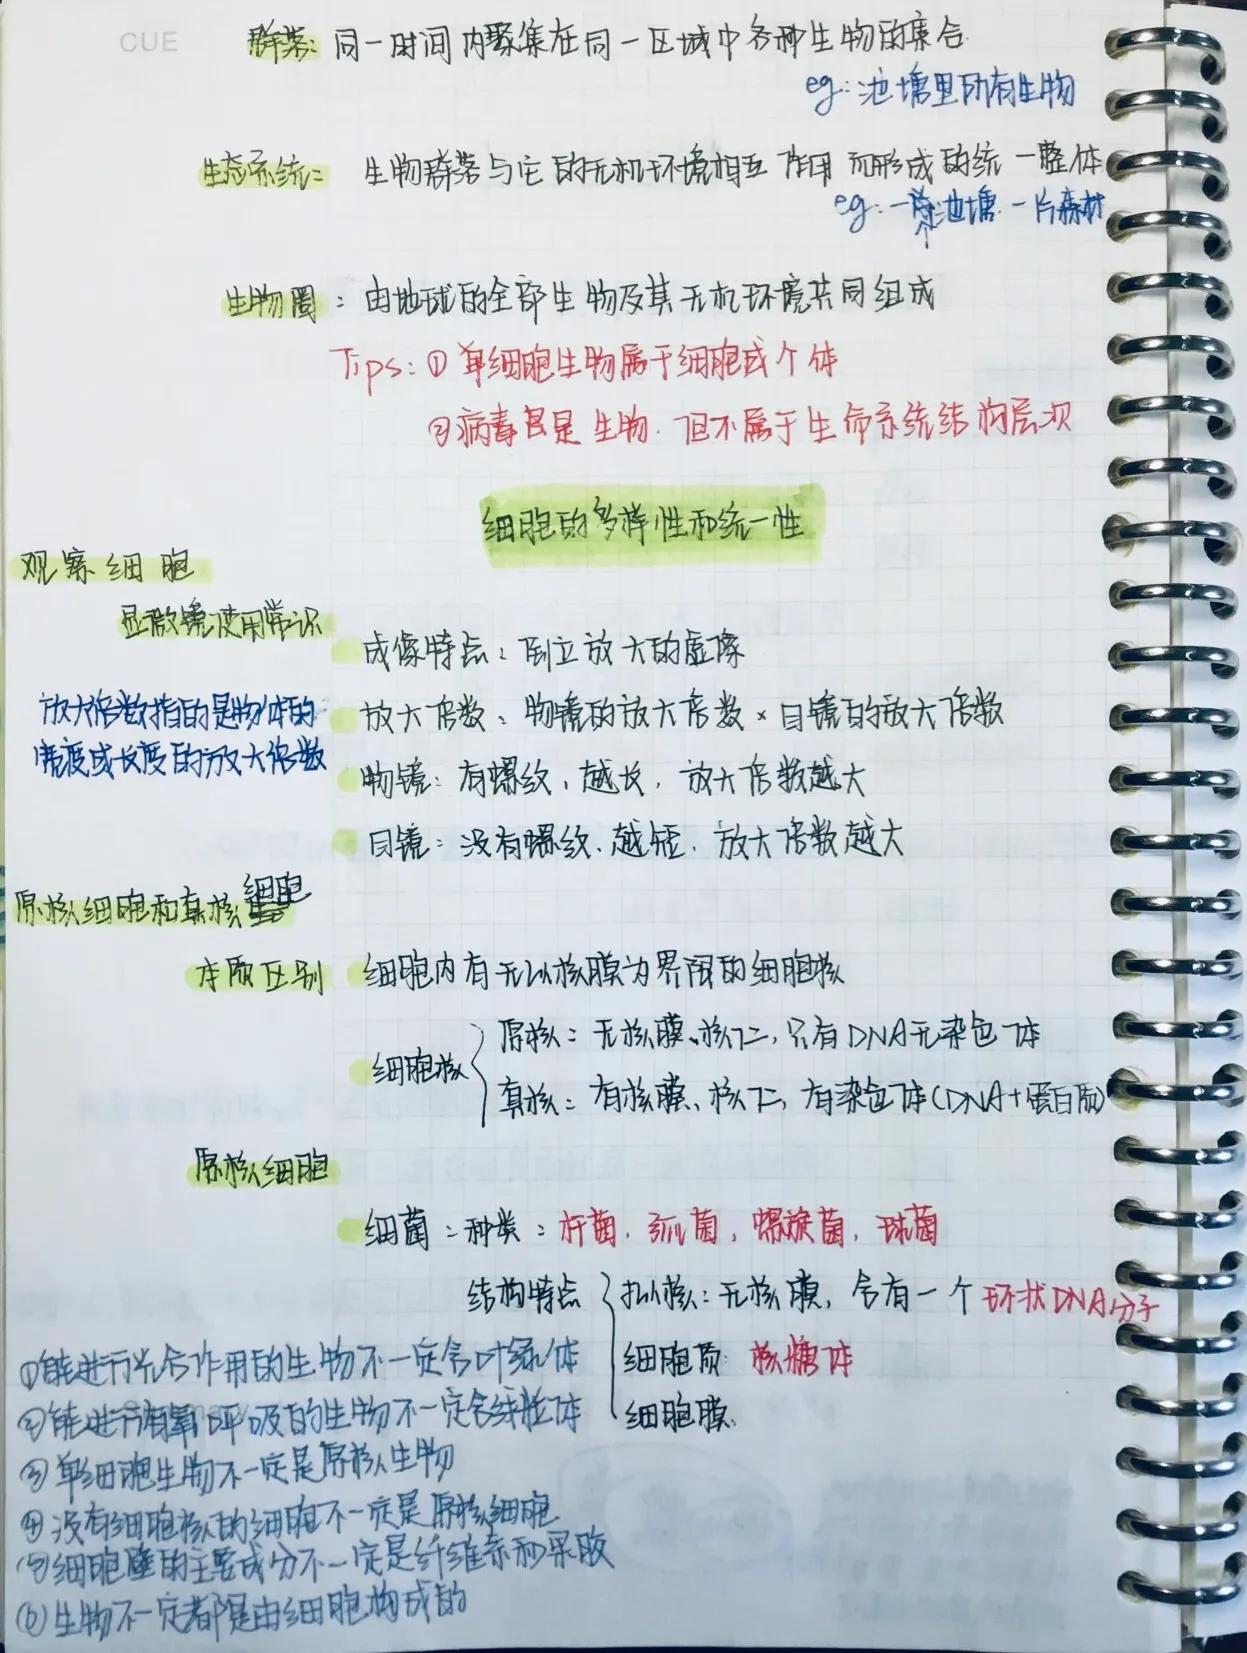 CUE
群落: 同一时间内聚集在同一区域中各种生物的集合
eg: 池塘里所有生物
生态系统: 生物群落与它的无机环境相互作用而形成的统一整体
eg: 一条池塘. 一片森林
生物圈: 由地球的全部生物及其无机环境共同组成
Tips: ① 单细胞生物属于细胞或个体
② 病毒虽是生物. 但不属于生命系统结构层次
细胞的多样性和统一性
观察细胞
显微镜使用常识
成像特点: 倒立放大的虚像
放大倍数指的是物体的
宽度或长度的放大倍数
放大倍数: 物镜的放大倍数×目镜的放大倍数
物镜: 有螺纹, 越长, 放大倍数越大
目镜: 没有螺纹, 越短, 放大倍数越大
原核细胞和真核细胞
本质区别 细胞内有无以核膜为界限的细胞核
细胞核
原核: 无核膜、核仁, 只有DNA无染色体
真核: 有核膜、核仁, 有染色体(DNA+蛋白质)
原核细胞
细菌: 种类: 杆菌, 弧菌, 螺旋菌, 球菌
结构特点
拟核: 无核膜, 含有一个环状DNA分子
细胞质: 核糖体
细胞膜.
①能进行光合作用的生物不一定含叶绿体
②能进行有氧呼吸的生物不一定含线粒体
③单细胞生物不一定是原核生物
④没有细胞核的细胞不一定是原核细胞
⑤细胞壁的主要成分不一定是纤维素和果胶
⑥生物不一定都是由细胞构成的